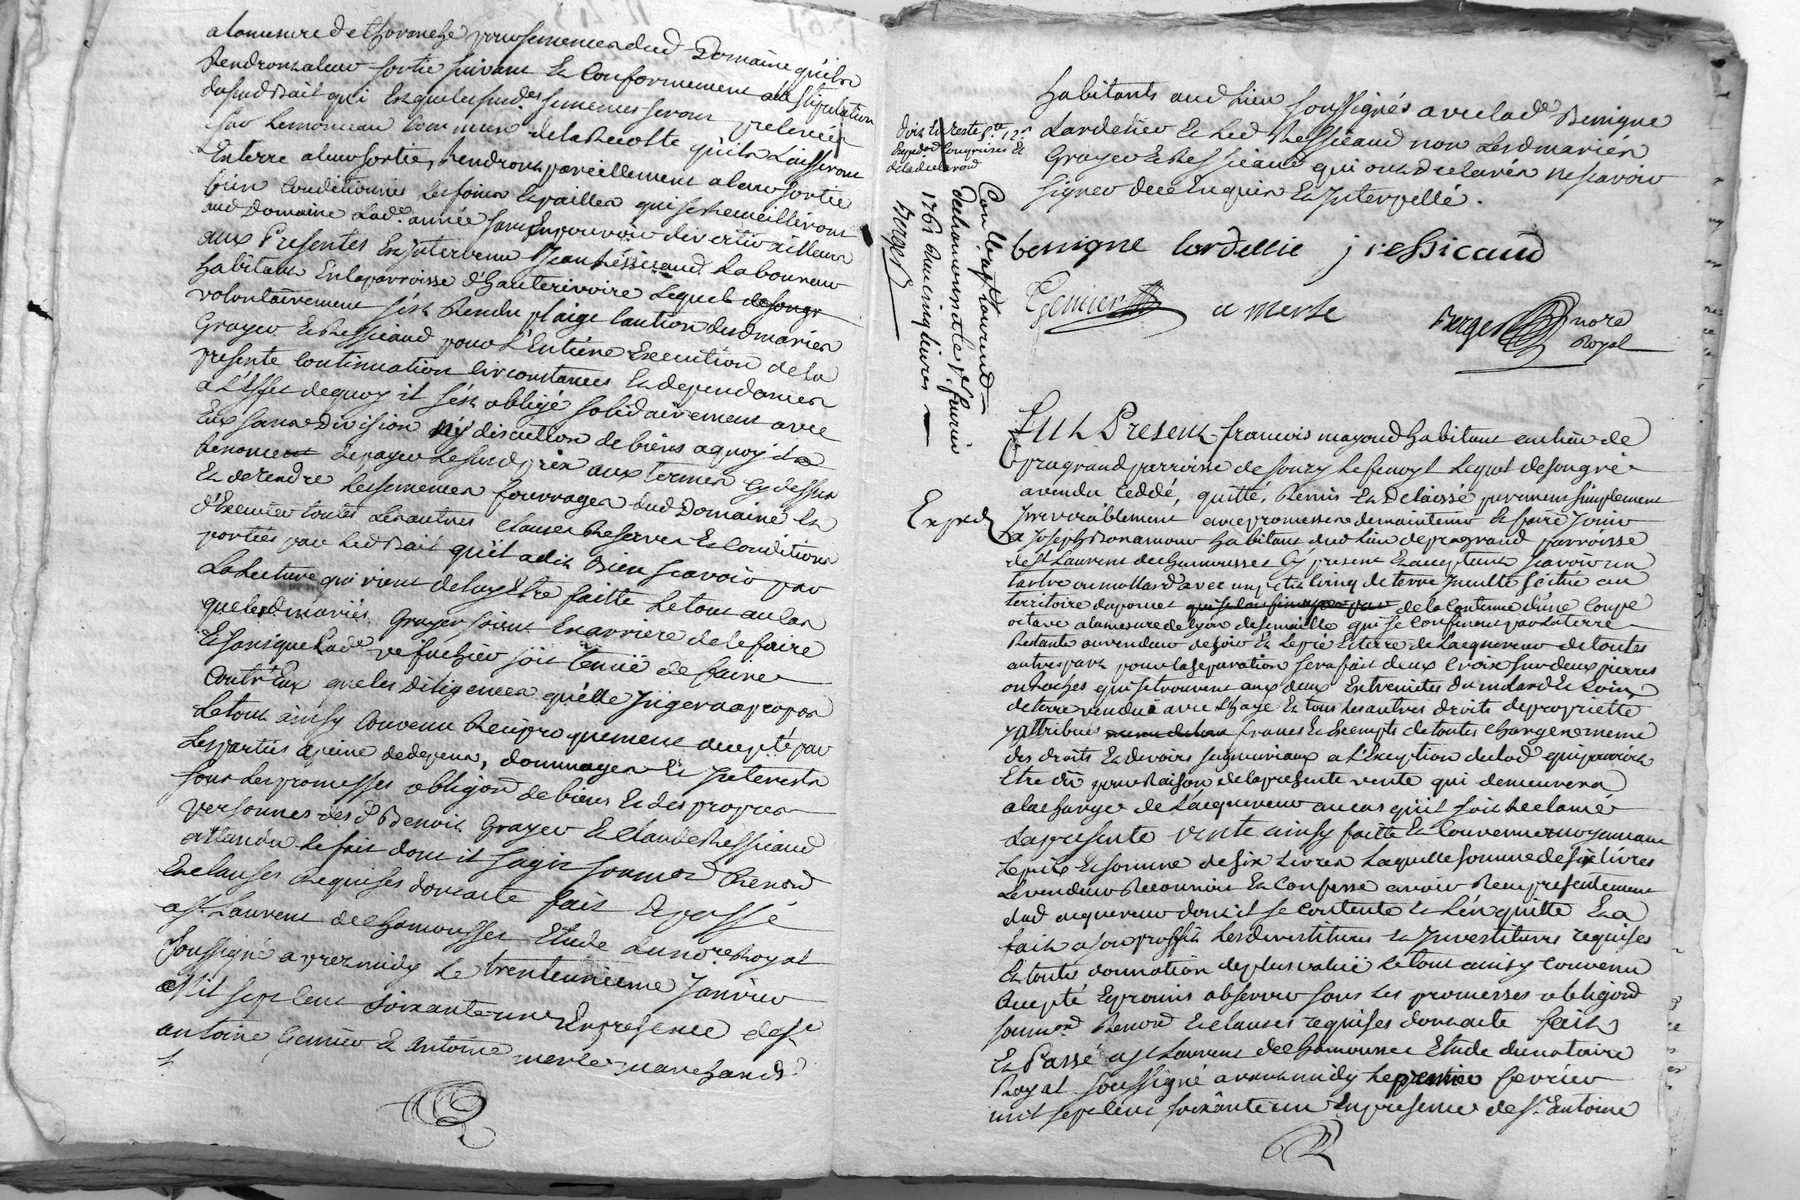 a la mesure de Chevrieres pour semences dud Domaine qu'ils
Rendront a leur sortie suivant et Conformement aux stipulations
dusud Bail qui Est que lesud. semences seront prelevées
sur Le monceau Commun de la Recolte qu'ils Laisseront
En terre a leur sortie, rendront pareillement a leur sortie
bien Conditionnés Les foins et pailles qui se Recueilliront
aud Domaine Lad. année sans En pouvoir divertir ailleurs
aux Presentes Est Intervenu Jean Ressicaud Laboureur
habitant En la parroisse d'hauterivoire Lequel de son gr
volontairement s'est Rendu plaige Caution desd mariés
Grayer et Ressicaud pour L'Entiere Execution de la
presente Continuation Circonstances et dependances
a L'Effet de quoy il s'est obligé solidairement avec
Eux sans Division ny discution de biens a quoy il a
Renoncé de payer Le susd prix aux termes Cy dessus
Et de rendre Les semences fourrages dud Domaine et
d'Executer toutes Les autres Clauses Reserves Et Conditions
portées par Led Bail qu'il a dit Bien scavoir par
La Lecture qui vient de luy Etre faitte Le tout au Cas
que lesd mariés Grayer soient En arriere de le faire
Et sans que Lade soit tenuë de faire
Contr'Eux que les Diligences qu'elle Jugera a propos
Le tout ainsy Convenu Reciproquement accepté par
Les parties a peine de depens, dommages Et Interests
sous Les promesses obligaon de biens Et des propres
personnes des d Benoit Grayer Et Claude Ressicaud
attendu Le fait dont il s'agit soumon Renon
Et clauses requises dont acte fait Et passé
a St Laurent de Chamousset Etude du nore Royal
soussigné apres midy Le trente unieme Janvier
Mil sept cent soixante un En presence de Sr
antoine Genier Et antoine merle marchands
habitants aud Lieu soussignés avec lade Benigne
Lardelier Et Led Ressicaud non Lesd mariés
Grayer Et Ressicaud qui ont declarés ne scavoir
signer de ce Enquis Et Interpellé.
benigne lardellie j ressicaud
Genier a merle
Berger nore
Royal
Conlle a St Laurent
de Chamousset le 1er fevrier
1761 Reçu cinq livres
Berger
Exped
Fut Present francois mayoud habitant au lieu de
pragrand parroisse de souzy Lefenoyl Lequel de son gré
a vendu Ceddé, quitté, Remis Et Delaissé purement simplement
Irrevocablement avec promesses de maintenir Et faire Jouir
a Joseph Bonamour habitant dud Lieu de pragrand parroisse
de St Laurent de Chamousset Cy present Et acceptant scavoir un
tertre ou mollard avec un petit Coing de terre Inculte scitué au
territoire de la Contenue d'une Coupe
octave a la mesure de Lyon de semaille qui se Confinent par La terre
Restante au vendeur de soir Et Le pré Et terre de Lacquereur de toutes
autres parts pour la separation sera fait deux Croix sur deux pierres
ou Roches qui se trouvent aux deux Extremites du molard Et Coin
de terre vendu avec L'haye Et tous Les autres droits de propriette
y attribués francs Et Exempts de toutes Charges mesme
des droits Et devoirs seigneuriaux a L'Exception du lod qui pourroit
Etre dû pour Raison de la presente vente qui demeurera
a la Charge de L'acquereur au cas qu'il soit Reclamé
La presente vente ainsy faitte Et Convenue moyennant
Le prix Et somme de six Livres Laquelle somme de six Livres
Le vendeur Reconnoit Et Confesse avoir Reçu presentement
dud acquereur dont il se Contente Et L'en quitte Et a
fait a son proffit Les devestitures Et Investitures requises
Et toutes donnation de plus valuë Le tout ainsy convenu
accepté Et promis observer sous Les promesses obligaon
soumon Renon Et clauses requises dont acte fait
Et Passé a St Laurent de Chamousset Etude du notaire
Royal soussigné avant midy Le premier fevrier
mil sept cent soixante un En presence de Sr Antoine